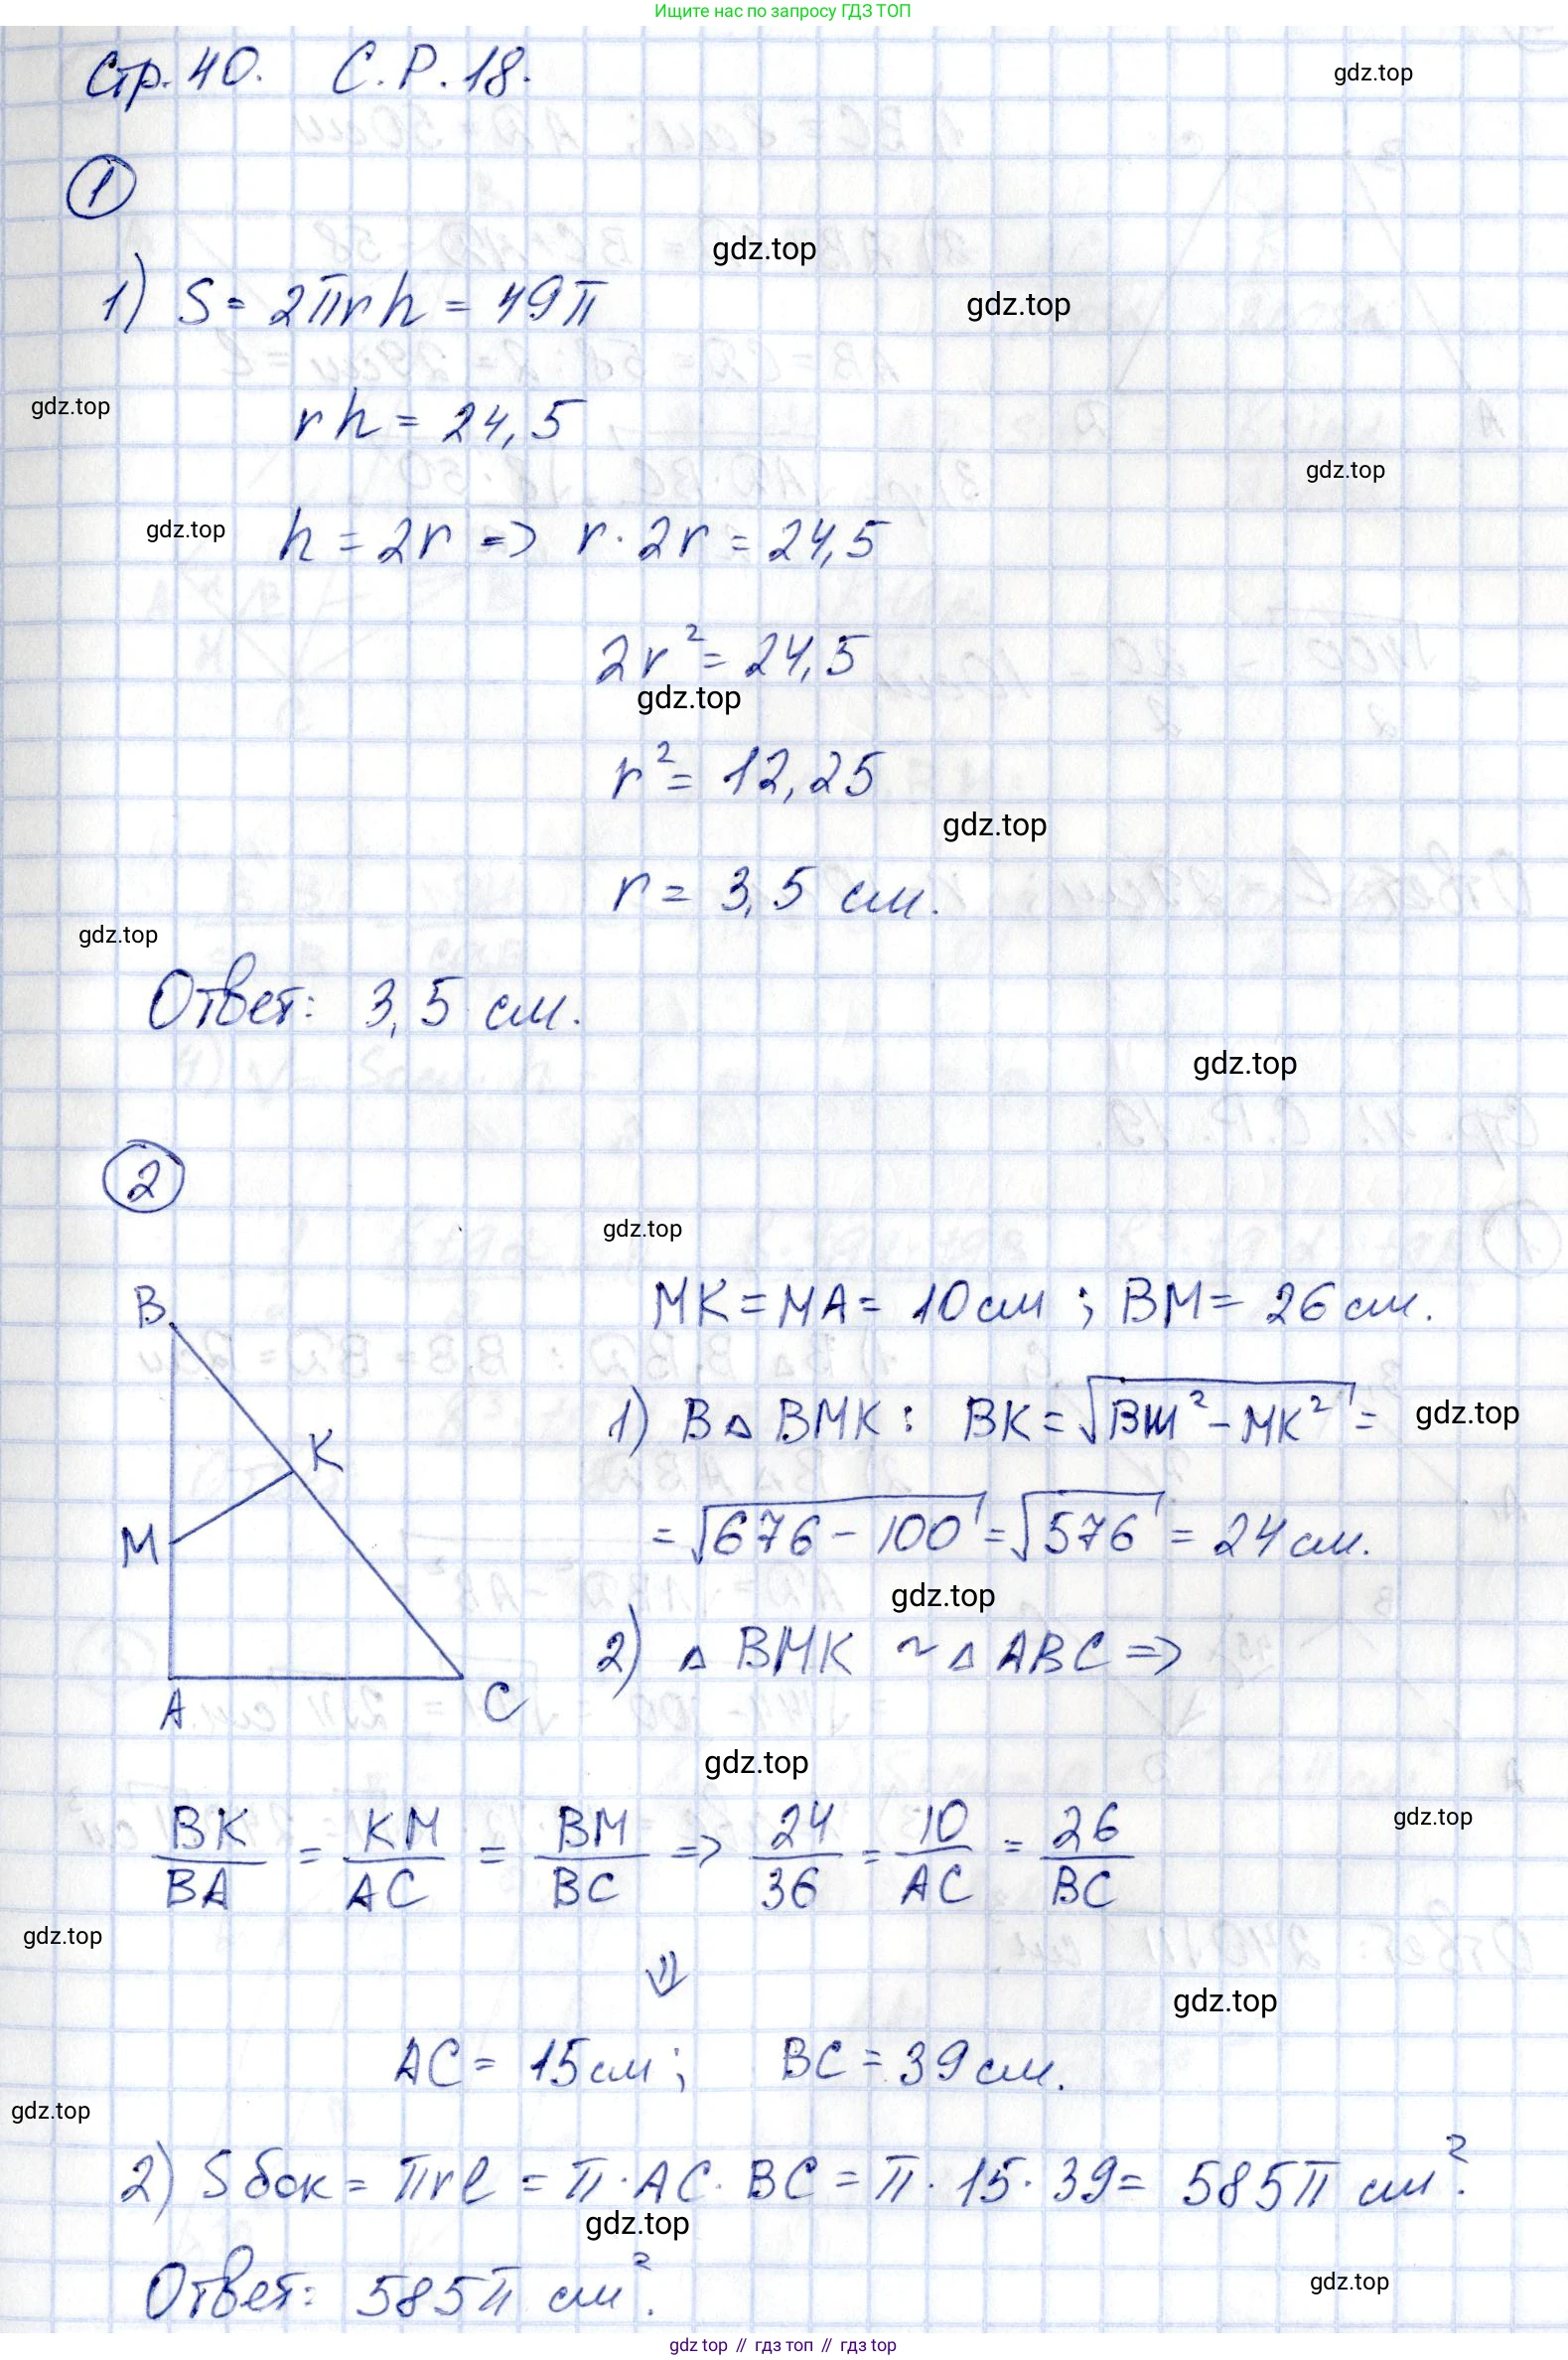 Ищите нас по запросу ГДЗ ТОП
Стр. 40. С.Р. 18.
gdz.top
1
gdz.top
1) S = 2πrh = 49π
gdz.top
gdz.top
rh = 24,5
gdz.top
gdz.top
h = 2r => r · 2r = 24,5
2r² = 24,5
gdz.top
r² = 12,25
gdz.top
r = 3,5 см.
gdz.top
Ответ: 3,5 см.
gdz.top
2
gdz.top
B
K
M
A
C
MK = MA = 10 см ; BM = 26 см.
1) В △ BMK : BK = √(BM² - MK²) =
gdz.top
= √(676 - 100) = √576 = 24 см.
gdz.top
2) △ BMK ~ △ ABC =>
gdz.top
BK/BA = KM/AC = BM/BC => 24/36 = 10/AC = 26/BC
gdz.top
gdz.top
⇓
gdz.top
AC = 15 см ; BC = 39 см.
gdz.top
2) Sбок = πrl = π · AC · BC = π · 15 · 39 = 585π см².
gdz.top
Ответ: 585π см².
gdz.top
gdz top // гдз топ // гдз top